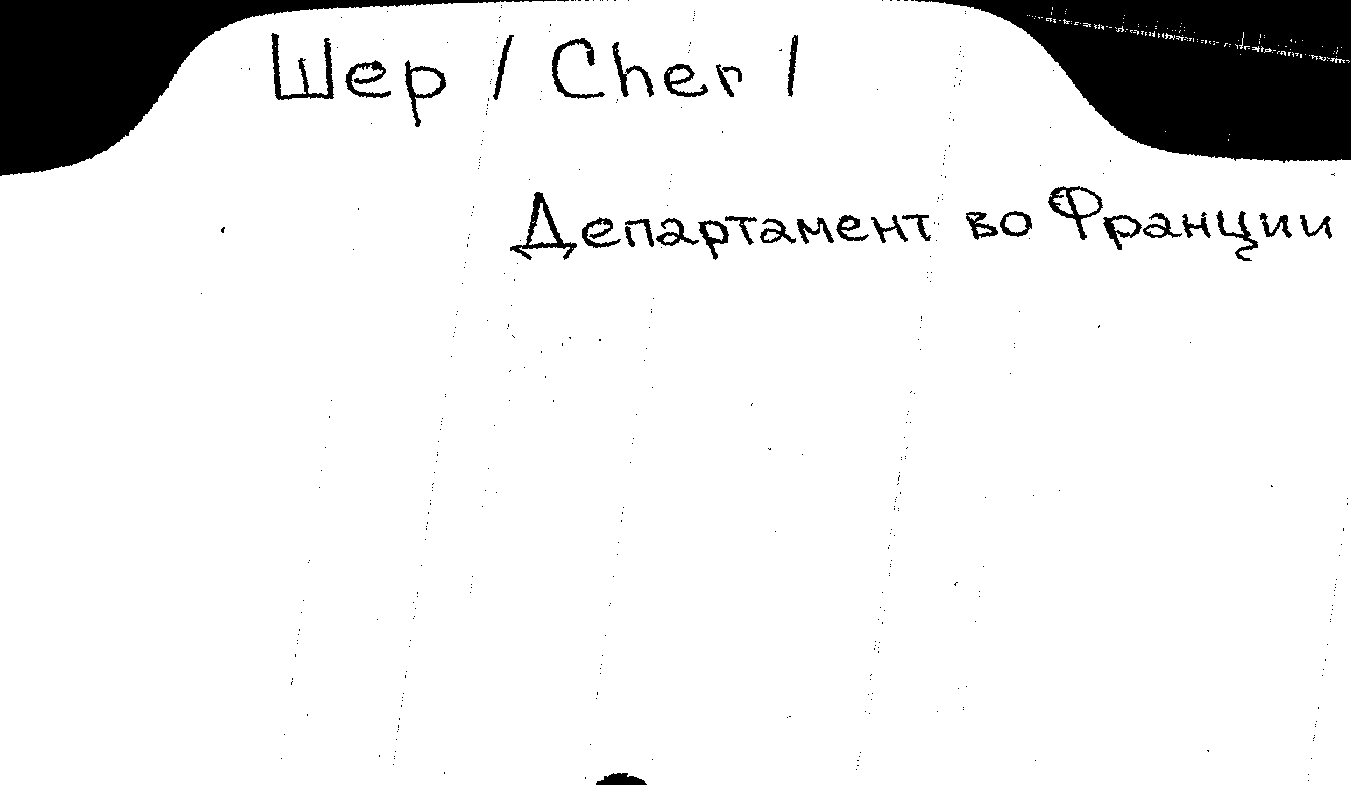 Шер / Cher /
Департамент во Франции